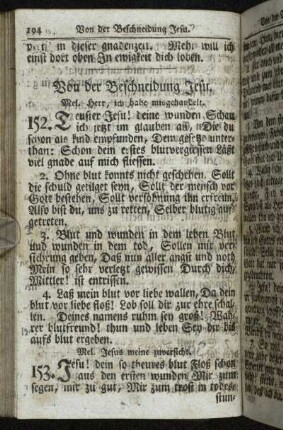 194 Von der Beschneidung Jesu.
in dieser gnadenzeit. Mehr will ich
einst dort oben In ewigkeit dich loben.
Von der Beschneidung Jesu.
Mel. Herr, ich habe mißgehandelt.
152. Teurster Jesu! deine wunden Schau
ich jetzt im glauben an, Die du
schon als kind empfunden, Dem gesetze unter-
than: Schon dein erstes blutvergiessen Läßt
viel gnade auf mich fliessen.
2. Ohne blut konnts nicht geschehen. Sollt
die schuld getilget seyn, Sollt der mensch vor
Gott bestehen, Sollt versöhnung ihn erfreun,
Also bist du, uns zu retten, Selber blutig auf-
getreten.
3. Blut und wunden in dem leben Blut
und wunden in dem tod, Sollen mir ver-
sicherung geben, Daß nun aller angst und noth
Mein so sehr verletzt gewissen Durch dich,
Mittler! ist entrissen.
4. Laß mein blut vor liebe wallen, Da dein
blut vor liebe floß! Lob soll dir zur ehre schal-
len. Deines namens ruhm sey groß! Wah-
rer blutfreund! thun und leben Sey dir bis
aufs blut ergeben.
Mel. Jesus meine zuversicht.
153. Jesu! dein so theures blut Floß schon
aus den ersten wunden Mir zum
segen, mir zu gut, Mir zum trost in todes-
stun-